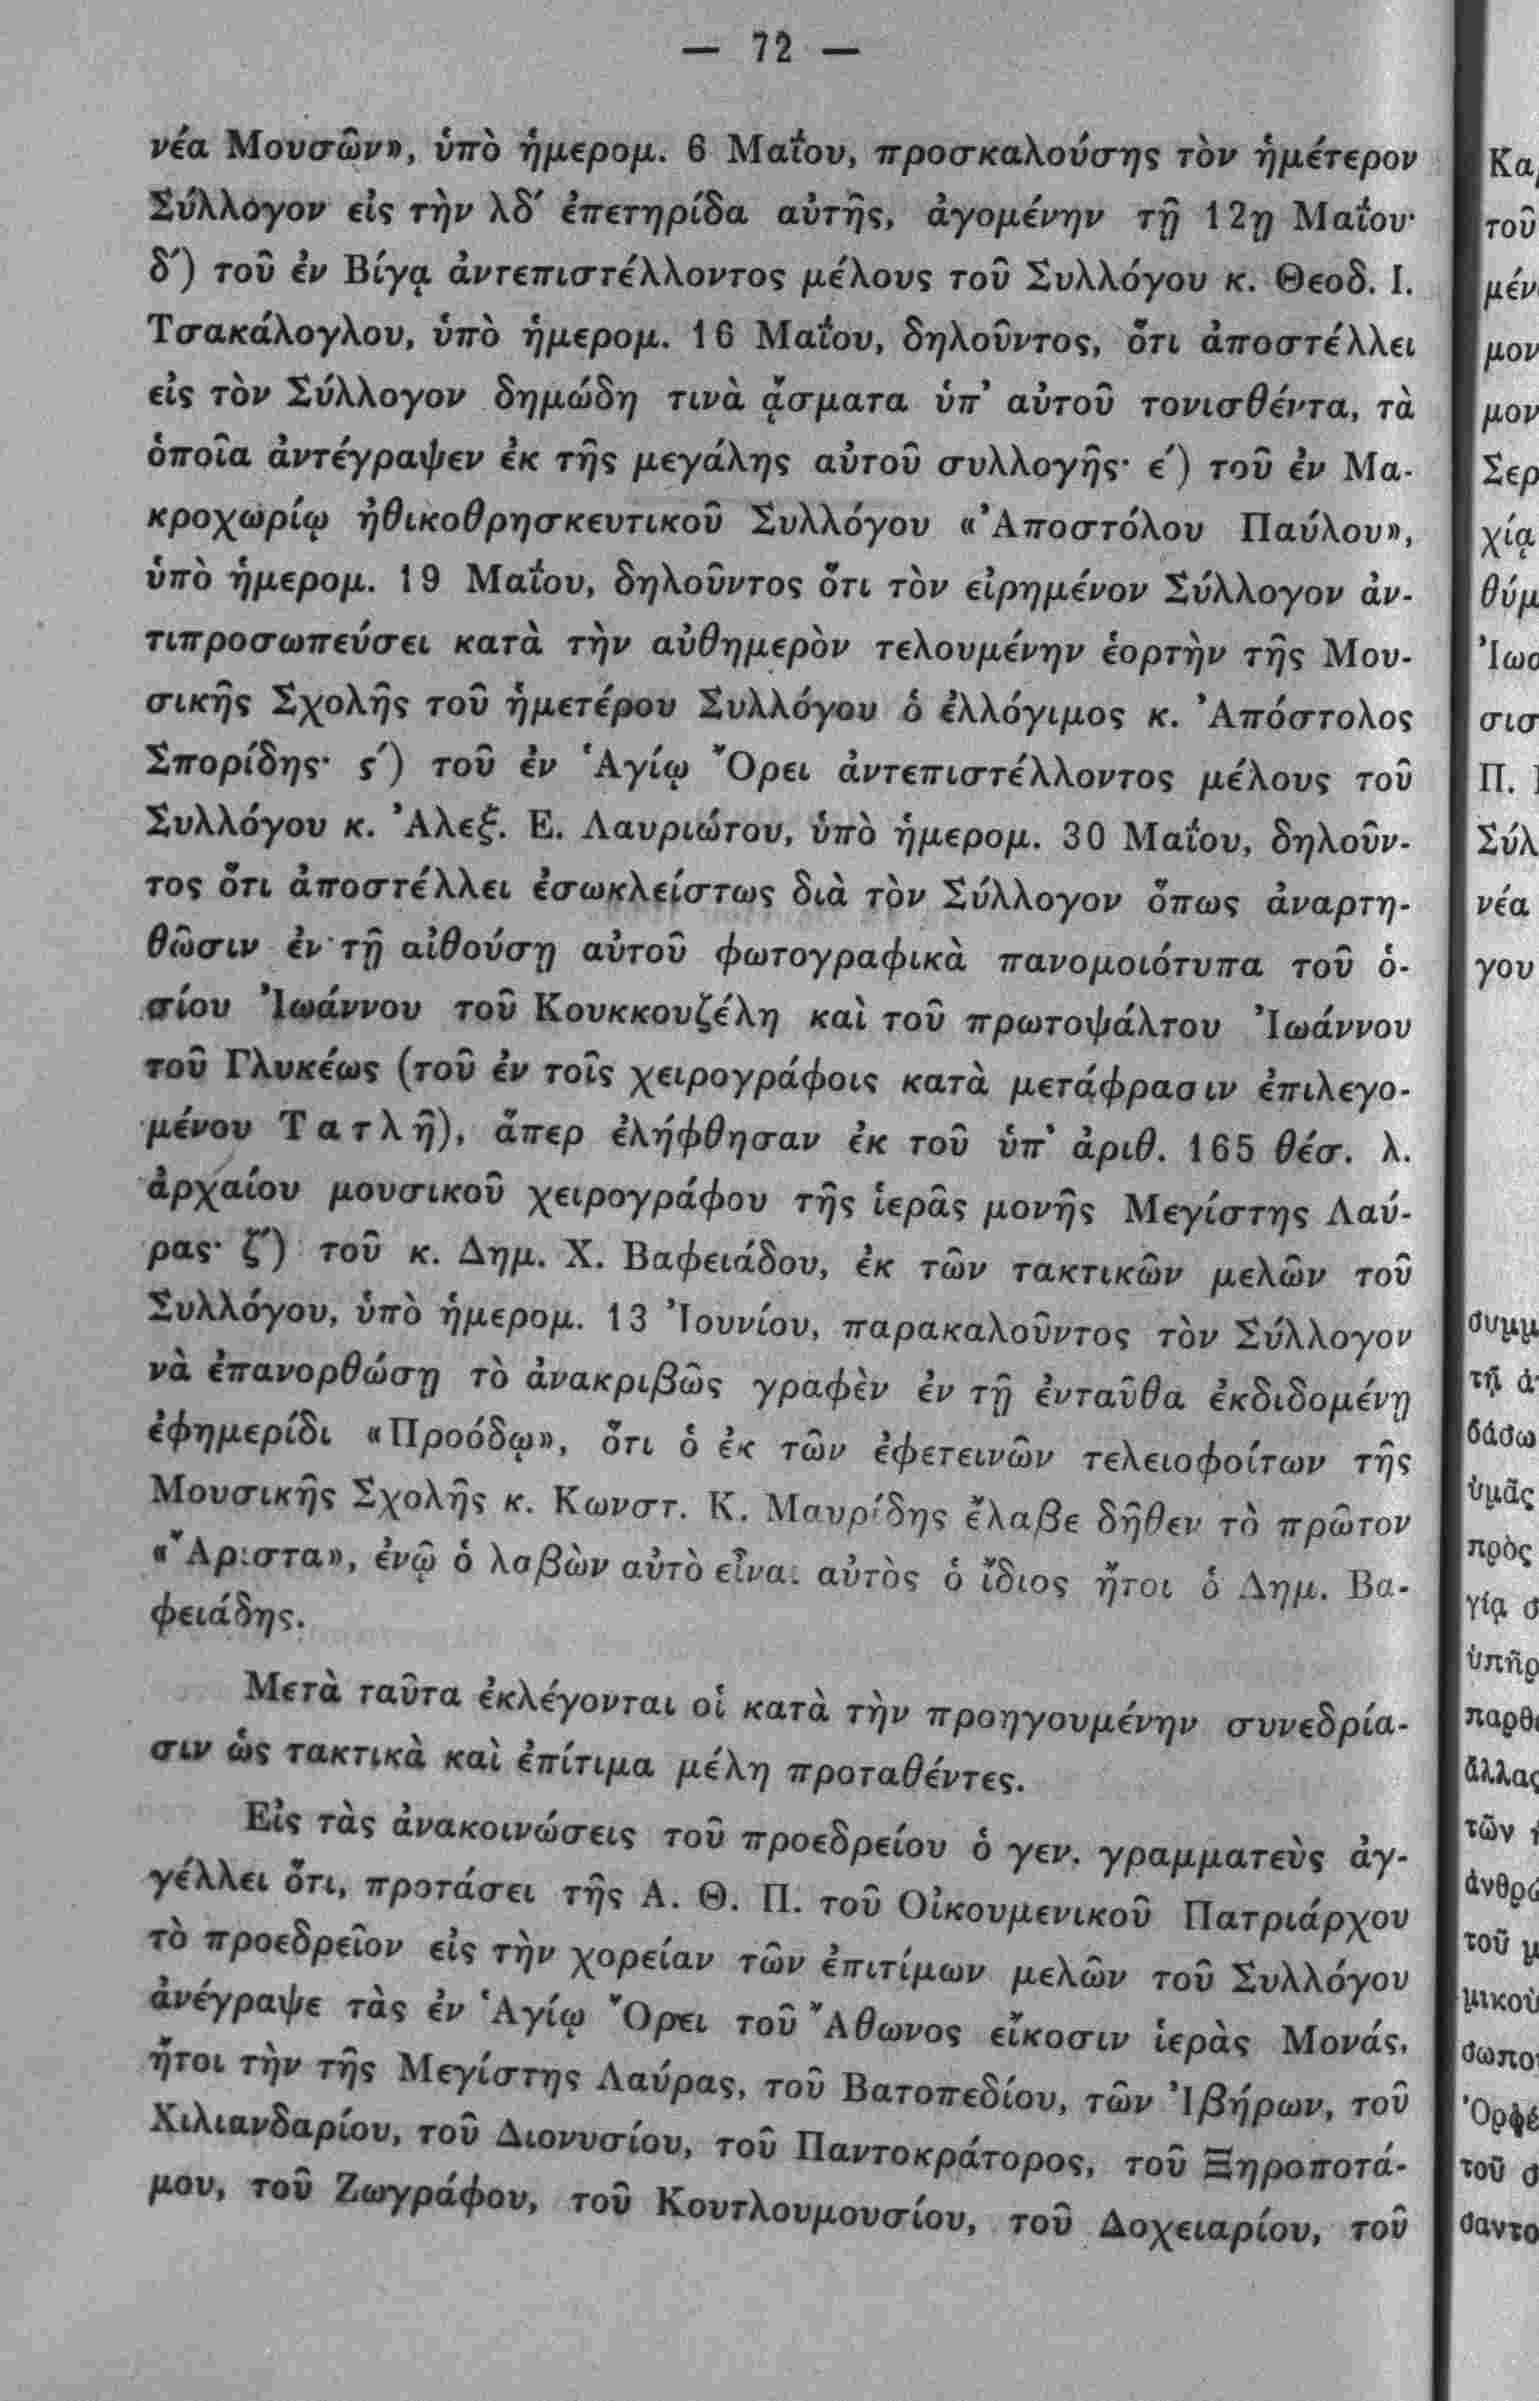 — 72 —
νέα Μουσῶν», ὑπὸ ἡμερομ. 6 Μαΐου, προσκαλούσης τὸν ἡμέτερον
Σύλλογον εἰς τὴν λδ′ ἐπετηρίδα αὐτῆς, ἀγομένην τῇ 12ῃ Μαΐου·
δ′) τοῦ ἐν Βίγᾳ ἀντεπιστέλλοντος μέλους τοῦ Συλλόγου κ. Θεοδ. Ι.
Τσακάλογλου, ὑπὸ ἡμερομ. 16 Μαΐου, δηλοῦντος, ὅτι ἀποστέλλει
εἰς τὸν Σύλλογον δημώδη τινὰ ᾄσματα ὑπ’ αὐτοῦ τονισθέντα, τὰ
ὁποῖα ἀντέγραψεν ἐκ τῆς μεγάλης αὐτοῦ συλλογῆς· ε′) τοῦ ἐν Μα-
κροχωρίῳ ἠθικοθρησκευτικοῦ Συλλόγου «Ἀποστόλου Παύλου»,
ὑπὸ ἡμερομ. 19 Μαΐου, δηλοῦντος ὅτι τὸν εἰρημένον Σύλλογον ἀν-
τιπροσωπεύσει κατὰ τὴν αὐθημερὸν τελουμένην ἑορτὴν τῆς Μου-
σικῆς Σχολῆς τοῦ ἡμετέρου Συλλόγου ὁ ἐλλόγιμος κ. Ἀπόστολος
Σπορίδης· ϛ′) τοῦ ἐν Ἁγίῳ Ὄρει ἀντεπιστέλλοντος μέλους τοῦ
Συλλόγου κ. Ἀλεξ. Ε. Λαυριώτου, ὑπὸ ἡμερομ. 30 Μαΐου, δηλοῦν-
τος ὅτι ἀποστέλλει ἐσωκλείστως διὰ τὸν Σύλλογον ὅπως ἀναρτη-
θῶσιν ἐν τῇ αἰθούσῃ αὐτοῦ φωτογραφικὰ πανομοιότυπα τοῦ ὁ-
σίου Ἰωάννου τοῦ Κουκκουζέλη καὶ τοῦ πρωτοψάλτου Ἰωάννου
τοῦ Γλυκέως (τοῦ ἐν τοῖς χειρογράφοις κατὰ μετάφρασιν ἐπιλεγο-
μένου Τατλῆ), ἅπερ ἐλήφθησαν ἐκ τοῦ ὑπ’ ἀριθ. 165 θέσ. λ.
ἀρχαίου μουσικοῦ χειρογράφου τῆς ἱερᾶς μονῆς Μεγίστης Λαύ-
ρας· ζ′) τοῦ κ. Δημ. Χ. Βαφειάδου, ἐκ τῶν τακτικῶν μελῶν τοῦ
Συλλόγου, ὑπὸ ἡμερομ. 13 Ἰουνίου, παρακαλοῦντος τὸν Σύλλογον
νὰ ἐπανορθώσῃ τὸ ἀνακριβῶς γραφὲν ἐν τῇ ἐνταῦθα ἐκδιδομένῃ
ἐφημερίδι «Προόδῳ», ὅτι ὁ ἐκ τῶν ἐφετεινῶν τελειοφοίτων τῆς
Μουσικῆς Σχολῆς κ. Κωνστ. Κ. Μαυρίδης ἔλαβε δῆθεν τὸ πρῶτον
«Ἄριστα», ἐνῷ ὁ λαβὼν αὐτὸ εἶναι αὐτὸς ὁ ἴδιος ἤτοι ὁ Δημ. Βα-
φειάδης.
Μετὰ ταῦτα ἐκλέγονται οἱ κατὰ τὴν προηγουμένην συνεδρία-
σιν ὡς τακτικὰ καὶ ἐπίτιμα μέλη προταθέντες.
Εἰς τὰς ἀνακοινώσεις τοῦ προεδρείου ὁ γεν. γραμματεὺς ἀγ-
γέλλει ὅτι, προτάσει τῆς Α. Θ. Π. τοῦ Οἰκουμενικοῦ Πατριάρχου
τὸ προεδρεῖον εἰς τὴν χορείαν τῶν ἐπιτίμων μελῶν τοῦ Συλλόγου
ἀνέγραψε τὰς ἐν Ἁγίῳ Ὄρει τοῦ Ἄθωνος εἴκοσιν ἱερὰς Μονάς,
ἤτοι τὴν τῆς Μεγίστης Λαύρας, τοῦ Βατοπεδίου, τῶν Ἰβήρων, τοῦ
Χιλιανδαρίου, τοῦ Διονυσίου, τοῦ Παντοκράτορος, τοῦ Ξηροποτά-
μου, τοῦ Ζωγράφου, τοῦ Κουτλουμουσίου, τοῦ Δοχειαρίου, τοῦ